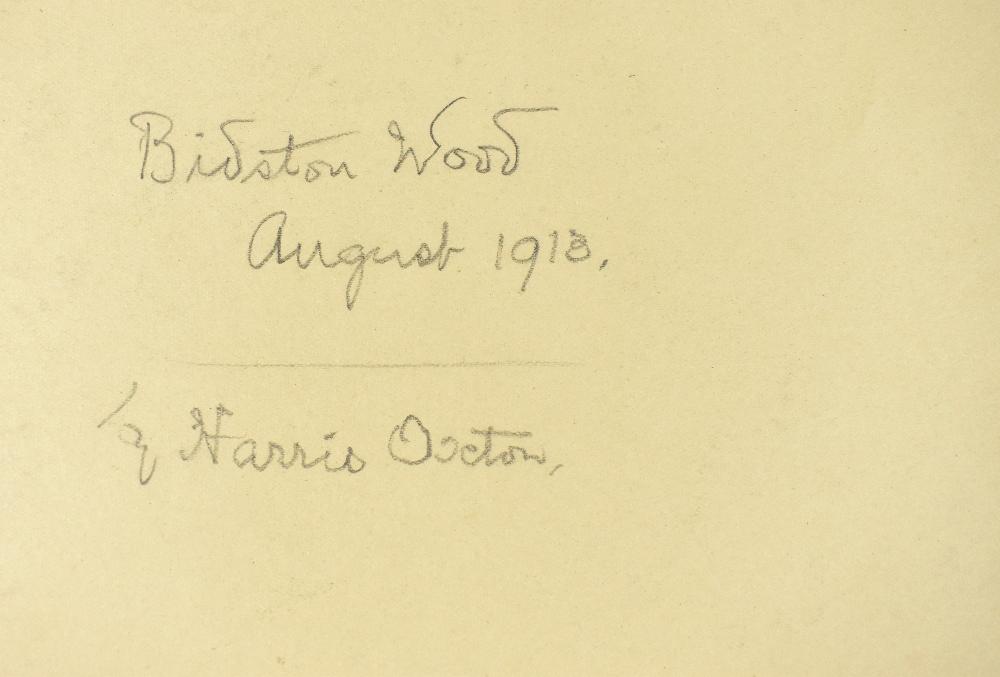 Bidston Wood
August 1913.
Harris Oxton,